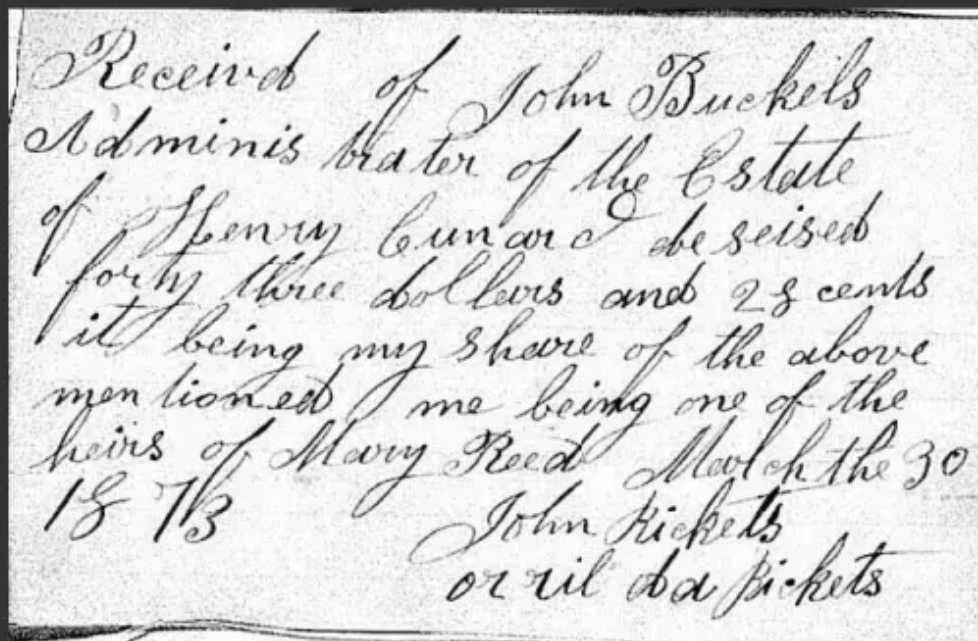 Receivd of John Buckels
Adminis trater of the Estate
of Henry Cunard deseised
forty three dollars and 28 cents
it being my share of the above
mentioned me being one of the
heirs of Mary Reed March the 30
1873
John Rickets
orrilda Rickets